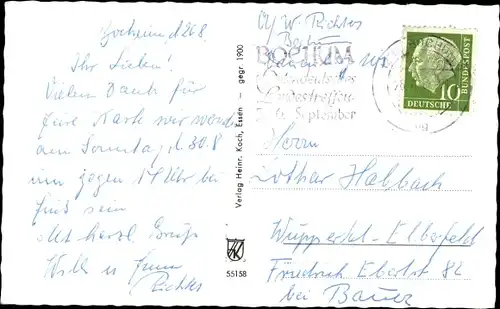 Bochum, d 26.8
Ihr Lieben!
Vielen Dank für
Eure Karte wir werden
am Sonntag d. 30.8
um gegen 14 Uhr bei
Euch sein
Mit herzl. Gruß
Willi u
Richter
Verlag Heinr. Koch, Essen – gegr. 1900
55158
W. Richter
Bochum
BOCHUM
Landestreffen
6. September
DEUTSCHE
BUNDESPOST
10
Herrn
Lothar Halbach
Wuppertal-Elberfeld
Friedrich Ebertst 82
bei Bauer